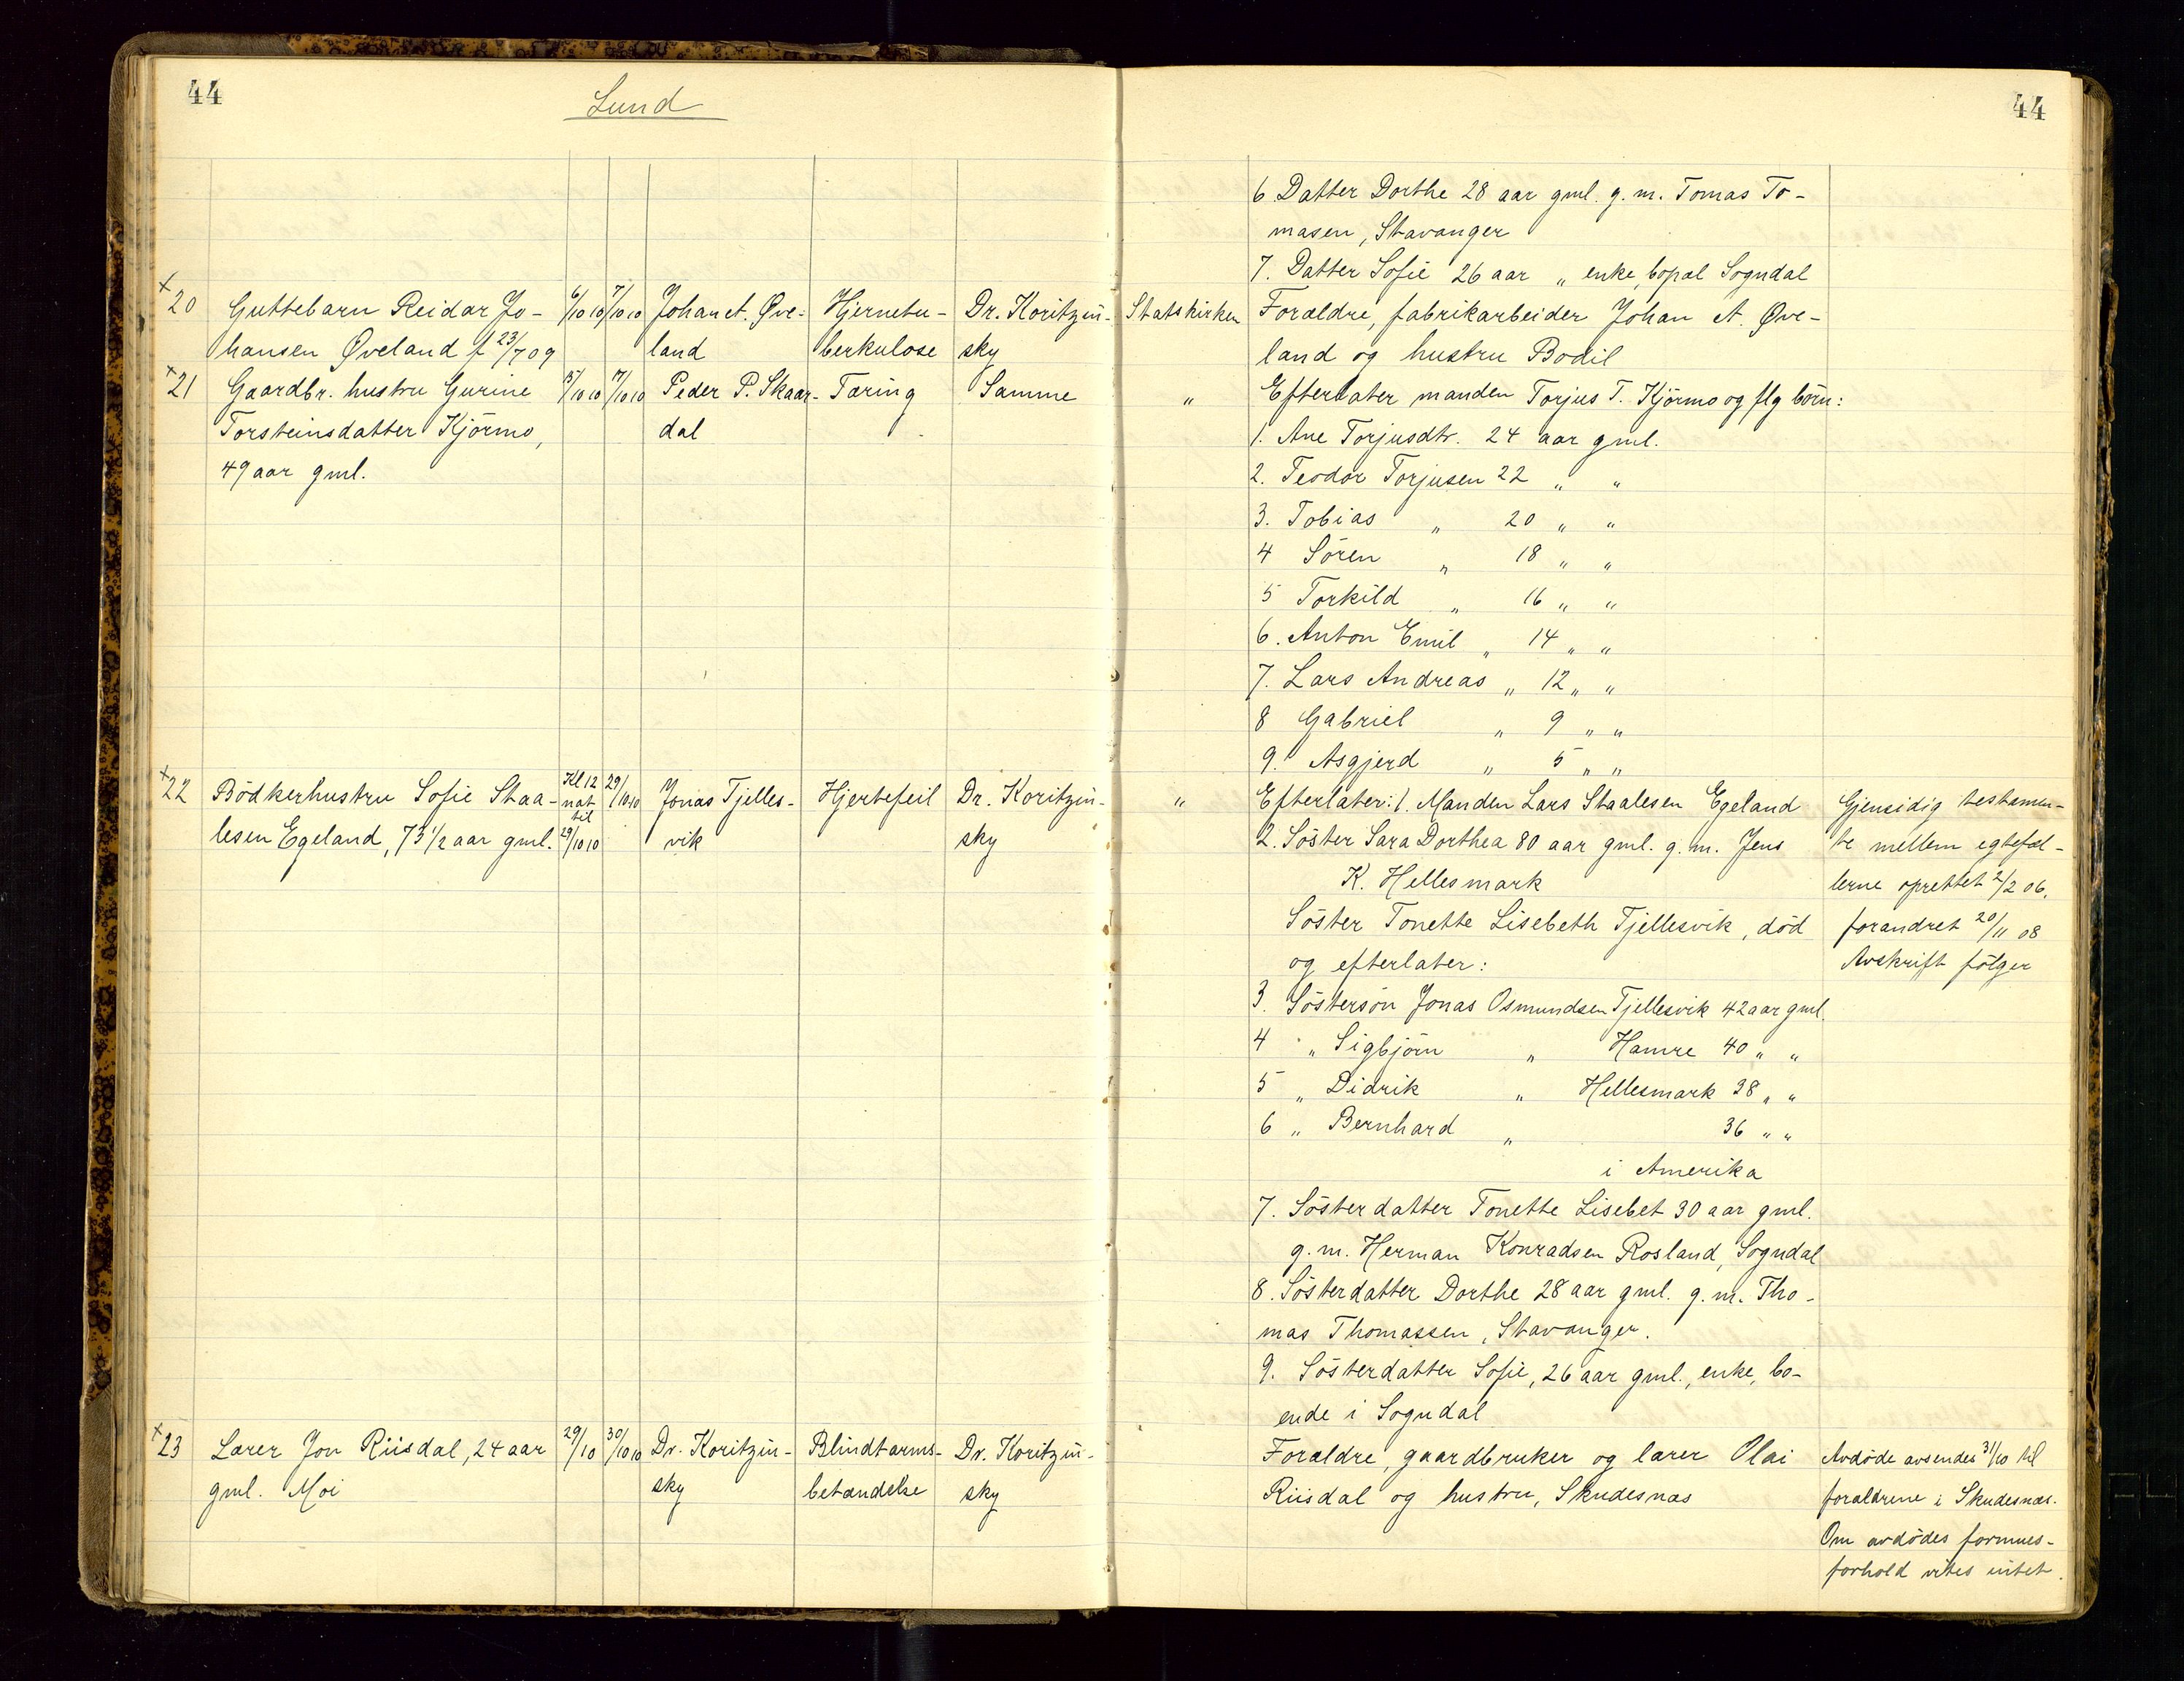 44
Lund
44
6. Datter Dorthe 28 aar gml. g. m. Tomas To-
masen, Stavanger
7. Datter Sofie 26 aar „ enke, bopæl Sogndal
+20 Guttebarn Reidar Jo- 6/10 10 7/10 10 Johan A. Øve- Hjernetu- Dr. Koritzin- Statskirken Forældre, fabrikarbeider Johan A. Øve-
hansen Øveland f 23/7 09 land berkulose sky land og hustru Bodil
+21 Gaardbr. hustru Gurine 5/10 10 7/10 10 Peder P. Skaar- Tæring Samme „ Efterlater manden Torjus T. Kjörmo og flg börn:
Torsteinsdatter Kjörmo, dal 1. Ane Torjusdtr. 24 aar gml.
49 aar gml. 2. Teodor Torjusen 22 „ „
3. Tobias „ 20 „ „
4 Sören „ 18 „ „
5 Torkild „ 16 „ „
6. Anton Emil „ 14 „ „
7. Lars Andreas „ 12 „ „
8 Gabriel „ 9 „ „
9. Asgjerd „ 5 „ „
+22 Bödkerhustru Sofie Staa- Kl 12 nat til 29/10 10 29/10 10 Jonas Tjelles- Hjertefeil Dr. Koritzin- „ Efterlater: 1. Manden Lars Staalesen Egeland Gjensidig testamen-
lesen Egeland, 73 1/2 aar gml. vik sky 2. Söster Sara Dorthea 80 aar gml. g. m. Jens te mellem egtefæl-
K. Hellesmark lerne oprettet 2/2 06,
Söster Tonette Lisebeth Tjellesvik, död forandret 20/11 08
og efterlater: Avskrift fölger
3. Söstersön Jonas Osmundsen Tjellesvik 42 aar gml.
4 „ Sigbjörn „ Hamre 40 „ „
5 „ Didrik „ Hellesmark 38 „ „
6 „ Bernhard „ 36 „ „
i Amerika
7. Sösterdatter Tonette Lisebet 30 aar gml.
g. m. Herman Konradsen Rosland, Sogndal
8. Sösterdatter Dorthe 28 aar gml. g. m. Tho-
mas Thomassen, Stavanger.
9. Sösterdatter Sofie, 26 aar gml., enke, bo-
ende i Sogndal
+23 Lærer Jon Riisdal, 24 aar 29/10 30/10 10 Dr. Koritzin- Blindtarms- Dr. Koritzin- Forældre, gaardbruker og lærer Olai Avdöde avsendes 31/10 til
gml. Moi sky betændelse sky Riisdal og hustru, Skudesnæs forældrene i Skudesnæs.
Om avdödes formues-
forhold vites intet.